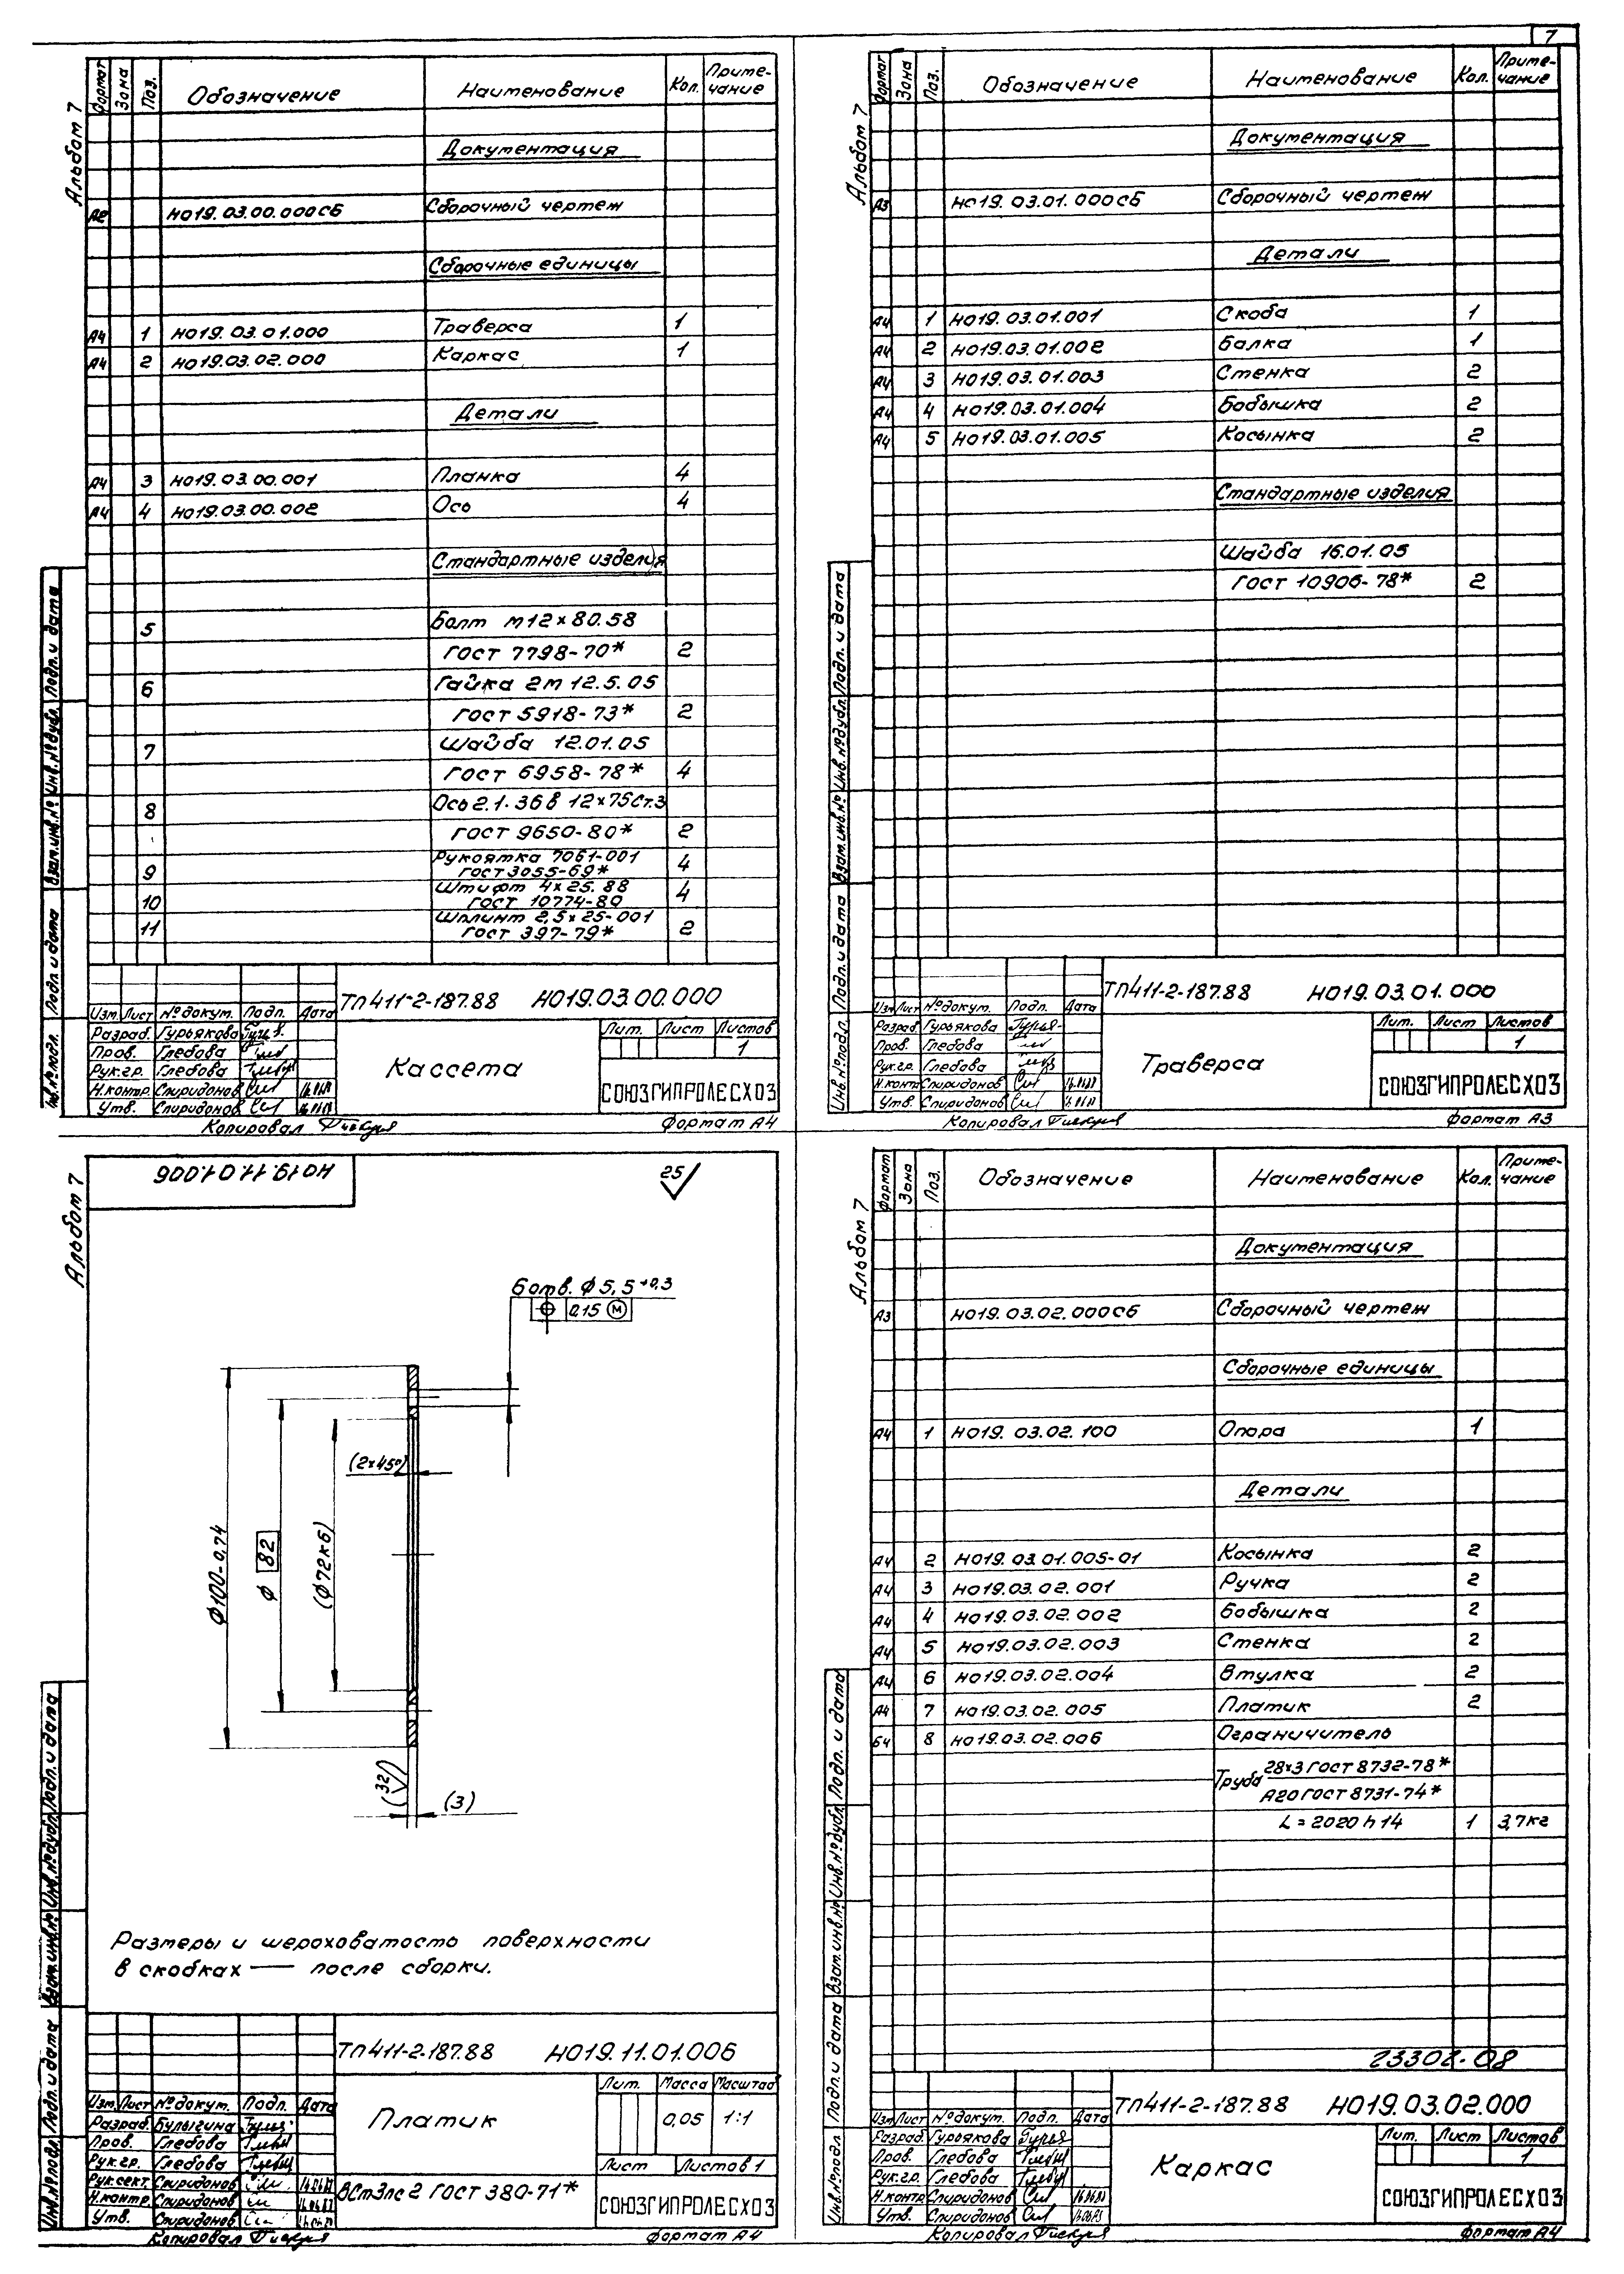 7
Альбом 7
Формат Зона Поз. Обозначение Наименование Кол. Приме-чание
Документация
А2 НО19.03.00.000СБ Сборочный чертеж
Сборочные единицы
А4 1 НО19.03.01.000 Траверса 1
А4 2 НО19.03.02.000 Каркас 1
Детали
А4 3 НО19.03.00.001 Планка 4
А4 4 НО19.03.00.002 Ось 4
Стандартные изделия
5 Болт М12×80.58
ГОСТ 7798-70* 2
6 Гайка 2М 12.5.05
ГОСТ 5918-73* 2
7 Шайба 12.01.05
ГОСТ 6958-78* 4
8 Ось 2.1.36 в 12×75 Ст.3
ГОСТ 9650-80* 2
9 Рукоятка 7061-001
ГОСТ 3055-69* 4
10 Штифт 4×25.88
ГОСТ 10774-80 4
11 Шплинт 2,5×25-001
ГОСТ 397-79* 2
Инв.№подл. Подп. и дата Взам.инв.№ Инв.№дубл. Подп. и дата
ТП411-2-187.88 НО19.03.00.000
Изм. Лист №докум. Подп. Дата
Разраб. Гурьякова
Пров. Глебова
Рук.гр. Глебова
Н.контр. Спиридонов
Утв. Спиридонов
Кассета
Лит. Лист Листов
1
СОЮЗГИПРОЛЕСХОЗ
Копировал Формат А4
Альбом 7
Формат Зона Поз. Обозначение Наименование Кол. Приме-чание
Документация
А3 НО19.03.01.000СБ Сборочный чертеж
Детали
А4 1 НО19.03.01.001 Скоба 1
А4 2 НО19.03.01.002 Балка 1
А4 3 НО19.03.01.003 Стенка 2
А4 4 НО19.03.01.004 Бобышка 2
А4 5 НО19.03.01.005 Косынка 2
Стандартные изделия
Шайба 16.01.05
ГОСТ 10906-78* 2
Инв.№подл. Подп. и дата Взам.инв.№ Инв.№дубл. Подп. и дата
ТП411-2-187.88 НО19.03.01.000
Изм Лист №докум. Подп. Дата
Разраб Гурьякова
Пров. Глебова
Рук.гр. Глебова
Н.контр Спиридонов
Утв. Спиридонов
Траверса
Лит. Лист Листов
1
СОЮЗГИПРОЛЕСХОЗ
Копировал Формат А3
Альбом 7
НО19.11.01.006
25
6 отв. ϕ5,5 +0,3
⌖ 0,15 Ⓜ
(2×45°)
ϕ100-0,74
ϕ 82
(ϕ72к6)
(32)
(3)
Размеры и шероховатость поверхности
в скобках — после сборки.
Инв.№подл. Подп. и дата Взам.инв.№ Инв.№дубл. Подп. и дата
ТП411-2-187.88 НО19.11.01.006
Изм. Лист №докум. Подп. Дата
Разраб. Булыгина
Пров. Глебова
Рук.гр. Глебова
Рук.сект. Спиридонов
Н.контр. Спиридонов
Утв. Спиридонов
Платик
Лит. Масса Масштаб
0,05 1:1
Лист Листов 1
ВСт3пс2 ГОСТ 380-71*
СОЮЗГИПРОЛЕСХОЗ
Копировал Формат А4
Альбом 7
Формат Зона Поз. Обозначение Наименование Кол. Приме-чание
Документация
А3 НО19.03.02.000СБ Сборочный чертеж
Сборочные единицы
А4 1 НО19.03.02.100 Опора 1
Детали
А4 2 НО19.03.01.005-01 Косынка 2
А4 3 НО19.03.02.001 Ручка 2
А4 4 НО19.03.02.002 Бобышка 2
А4 5 НО19.03.02.003 Стенка 2
А4 6 НО19.03.02.004 Втулка 2
А4 7 НО19.03.02.005 Платик 2
БЧ 8 НО19.03.02.006 Ограничитель
Труба 28×3 ГОСТ 8732-78*
А20 ГОСТ 8731-74*
L = 2020 h14 1 3,7кг
23302-08
Инв.№подл Подп. и дата Взам.инв.№ Инв.№дубл. Подп. и дата
ТП411-2-187.88 НО19.03.02.000
Изм Лист №докум. Подп. Дата
Разраб. Гурьякова
Пров. Глебова
Рук.гр. Глебова
Н.контр Спиридонов
Утв. Спиридонов
Каркас
Лит. Лист Листов
1
СОЮЗГИПРОЛЕСХОЗ
Копировал Формат А4